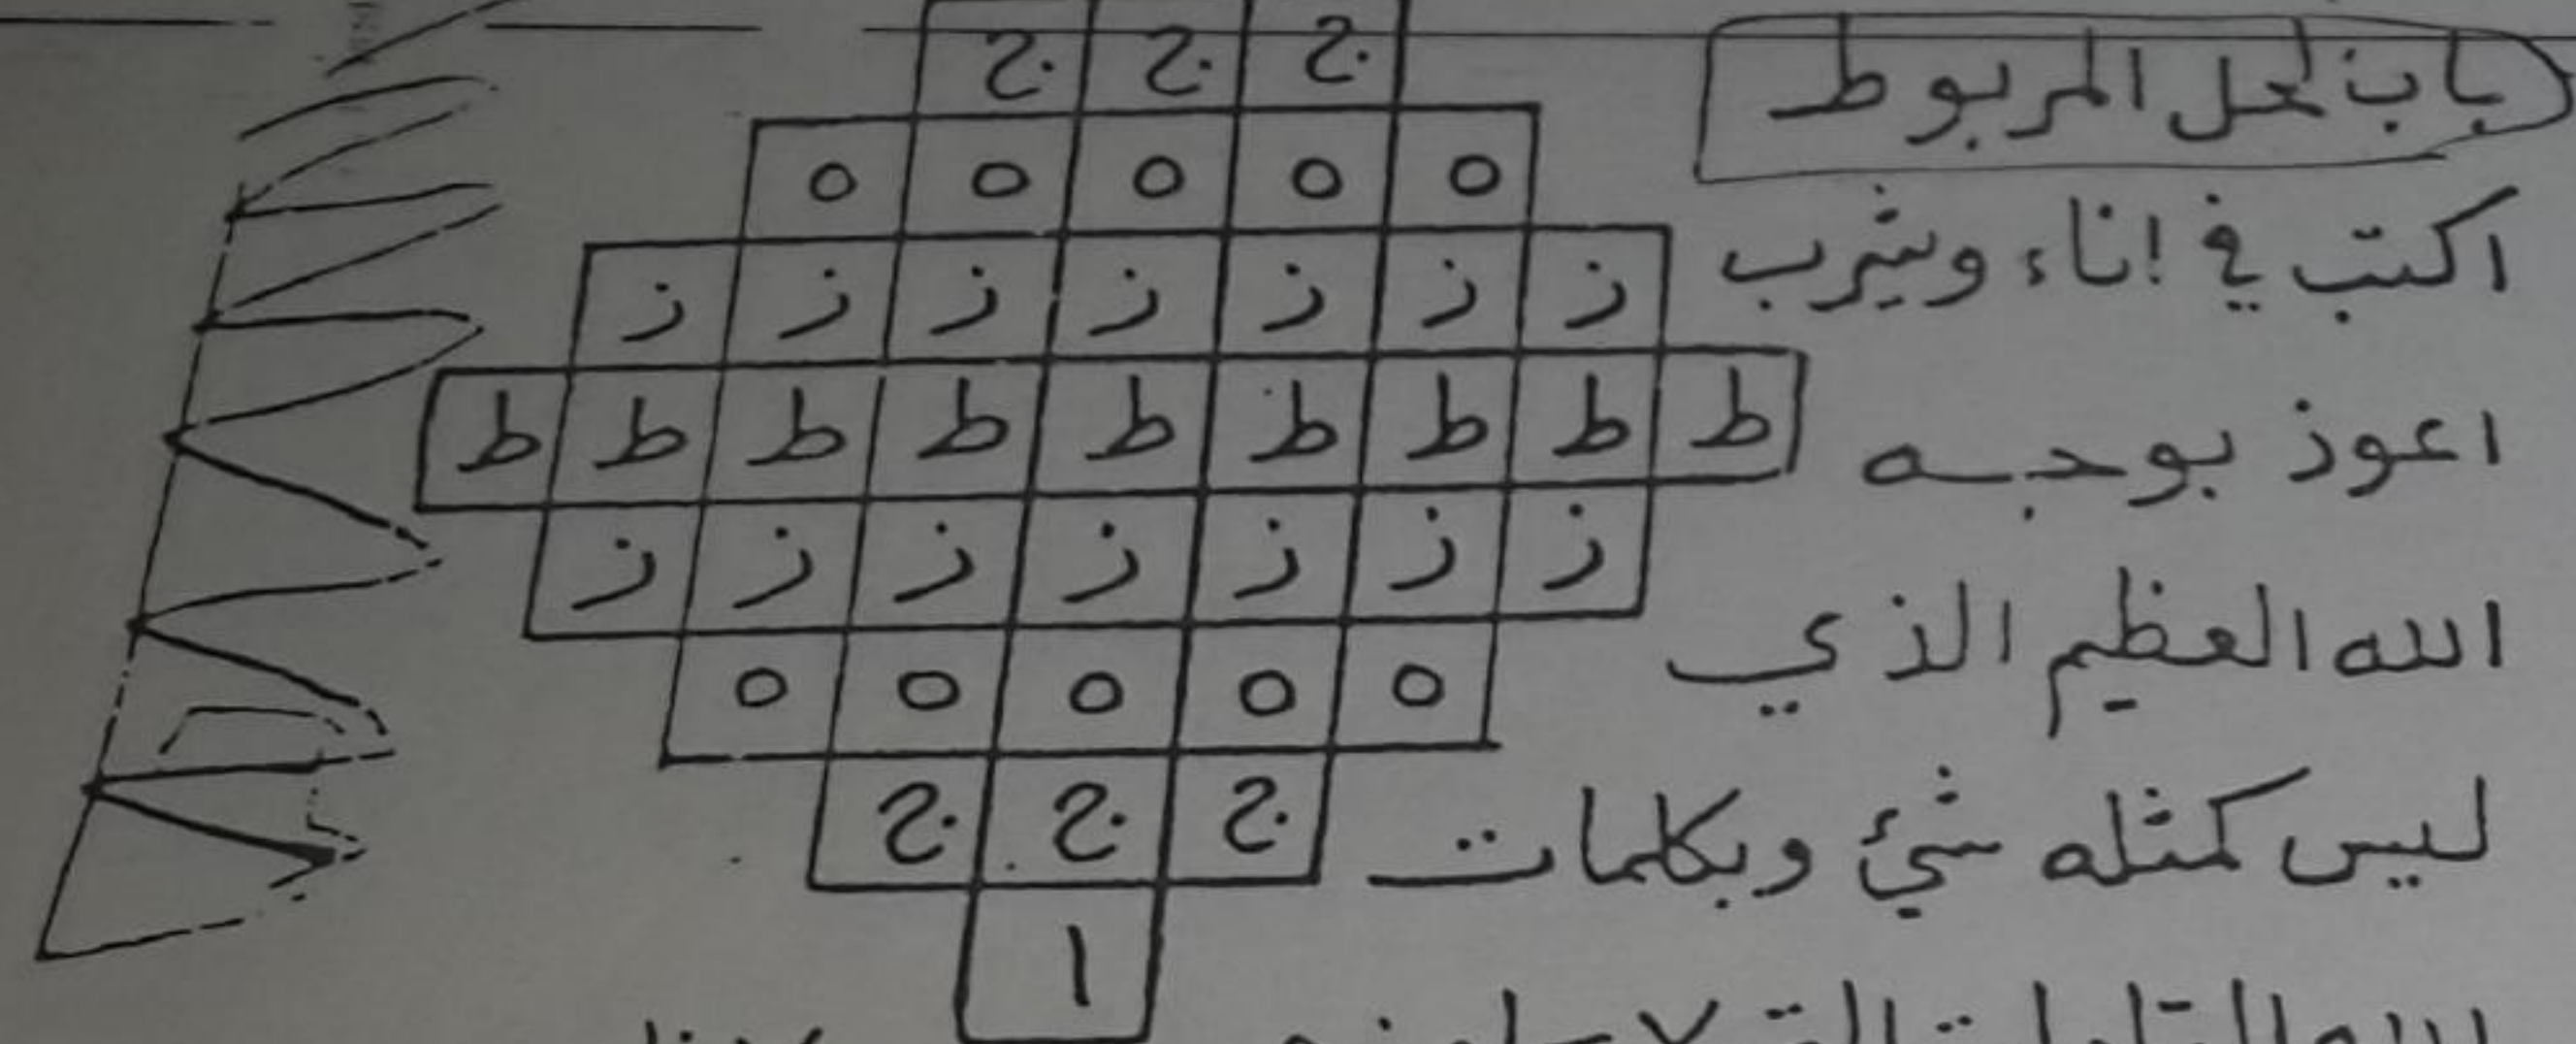 باب لحل المربوط
اكتب في إناء ويشرب
اعوذ بوجه
الله العظيم الذي
ليس كمثله شئ وبكلمات
ج ج ج
ه ه ه ه ه
ز ز ز ز ز ز ز
ط ط ط ط ط ط ط ط ط
ز ز ز ز ز ز ز
ه ه ه ه ه
ج ج ج
ا